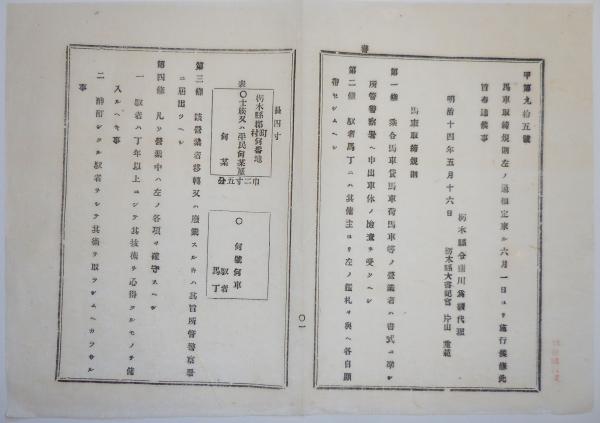 甲第九拾五號
馬車取締規則左ノ通相定來ル六月一日ヨリ施行候條此
旨布達候事
明治十四年五月十六日
栃木縣令藤川爲親代理
栃木縣大書記官 片山 重範
馬車取締規則
第一條 乘合馬車貸馬車荷馬車等ノ營業者ハ書式ニ準シ
所管警察署ヘ申出車体ノ檢査ヲ受クヘシ
第二條 馭者馬丁ニハ其傭主ヨリ左ノ鑑札ヲ與ヘ各自顯
帶セシムヘシ
長四寸
表
栃木縣郡町村何番地
〇士族又ハ平民何某雇
何某
巾二寸五分
〇 何號何車
馭者
馬丁
第三條 該營業者移轉又ハ廢業スルキハ其旨所管警察署
ニ屆出ツヘシ
第四條 凡ソ營業中ハ左ノ各項ヲ確守スヘシ
一 馭者ハ丁年以上ニシテ其技術ヲ心得タルモノヲ傭
入ルヘキ事
二 酩酊シタル馭者ヲシテ其術ヲ取ラシムヘカラサル
事
〇一